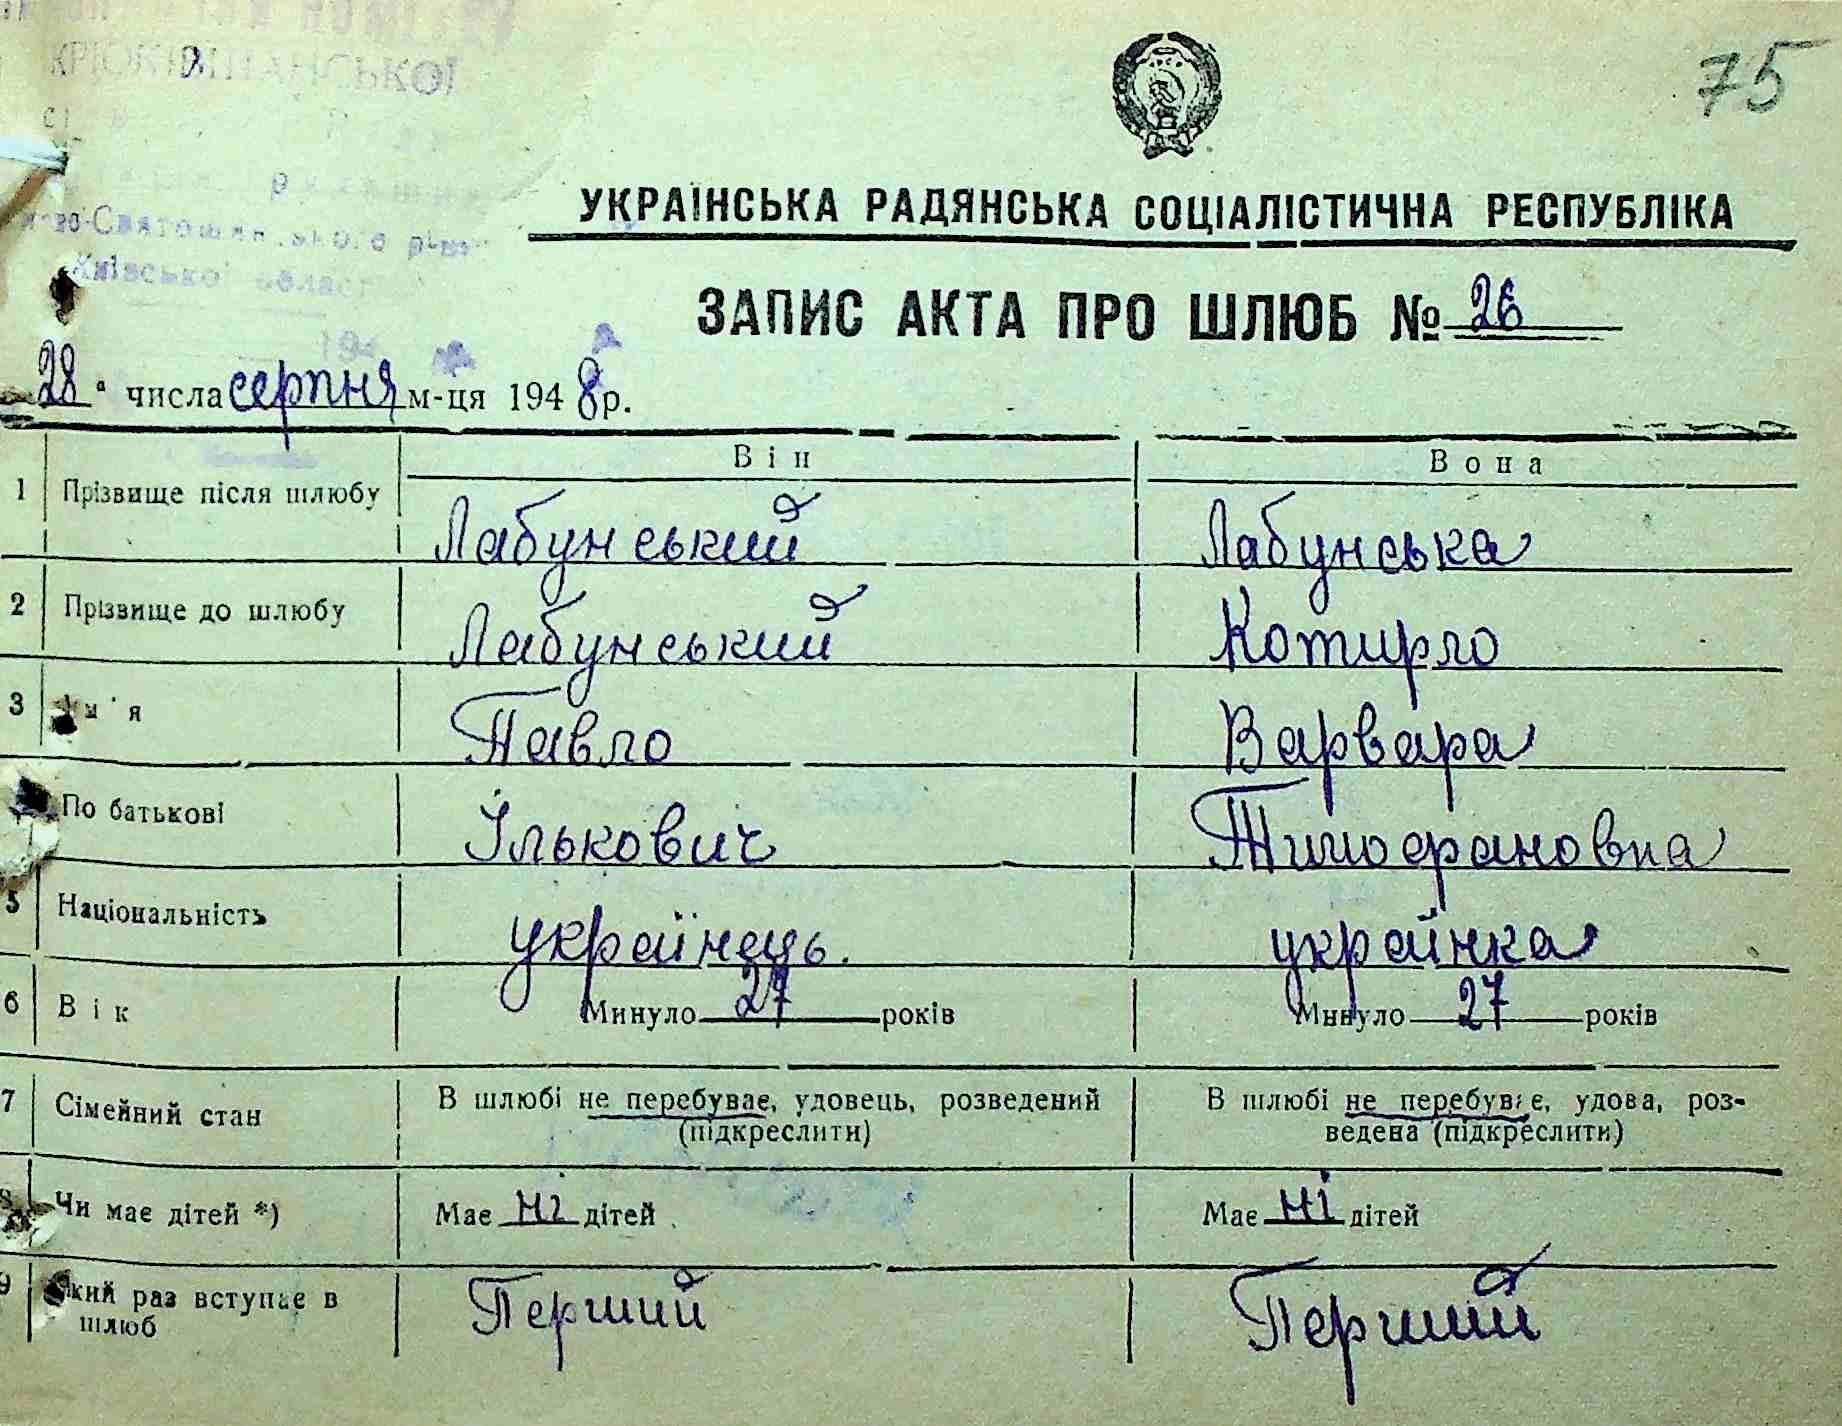 75
КРЮКІВЩАНСЬКОЇ
Києво-Святошинського р-ну
Київської області
УКРАЇНСЬКА РАДЯНСЬКА СОЦІАЛІСТИЧНА РЕСПУБЛІКА
ЗАПИС АКТА ПРО ШЛЮБ № 26
28 " числа серпня м-ця 1948 р.
Він Вона
1 Прізвище після шлюбу Лабунський Лабунська
2 Прізвище до шлюбу Лабунський Котирло
3 Ім'я Павло Варвара
По батькові Ількович Тимофановна
5 Національність українець. українка
6 Вік Минуло 27 років Минуло 27 років
7 Сімейний стан В шлюбі не перебуває, удовець, розведений В шлюбі не перебуває, удова, роз-
(підкреслити) ведена (підкреслити)
8 Чи має дітей *) Має ні дітей Має ні дітей
9 Який раз вступає в Перший Перший
шлюб